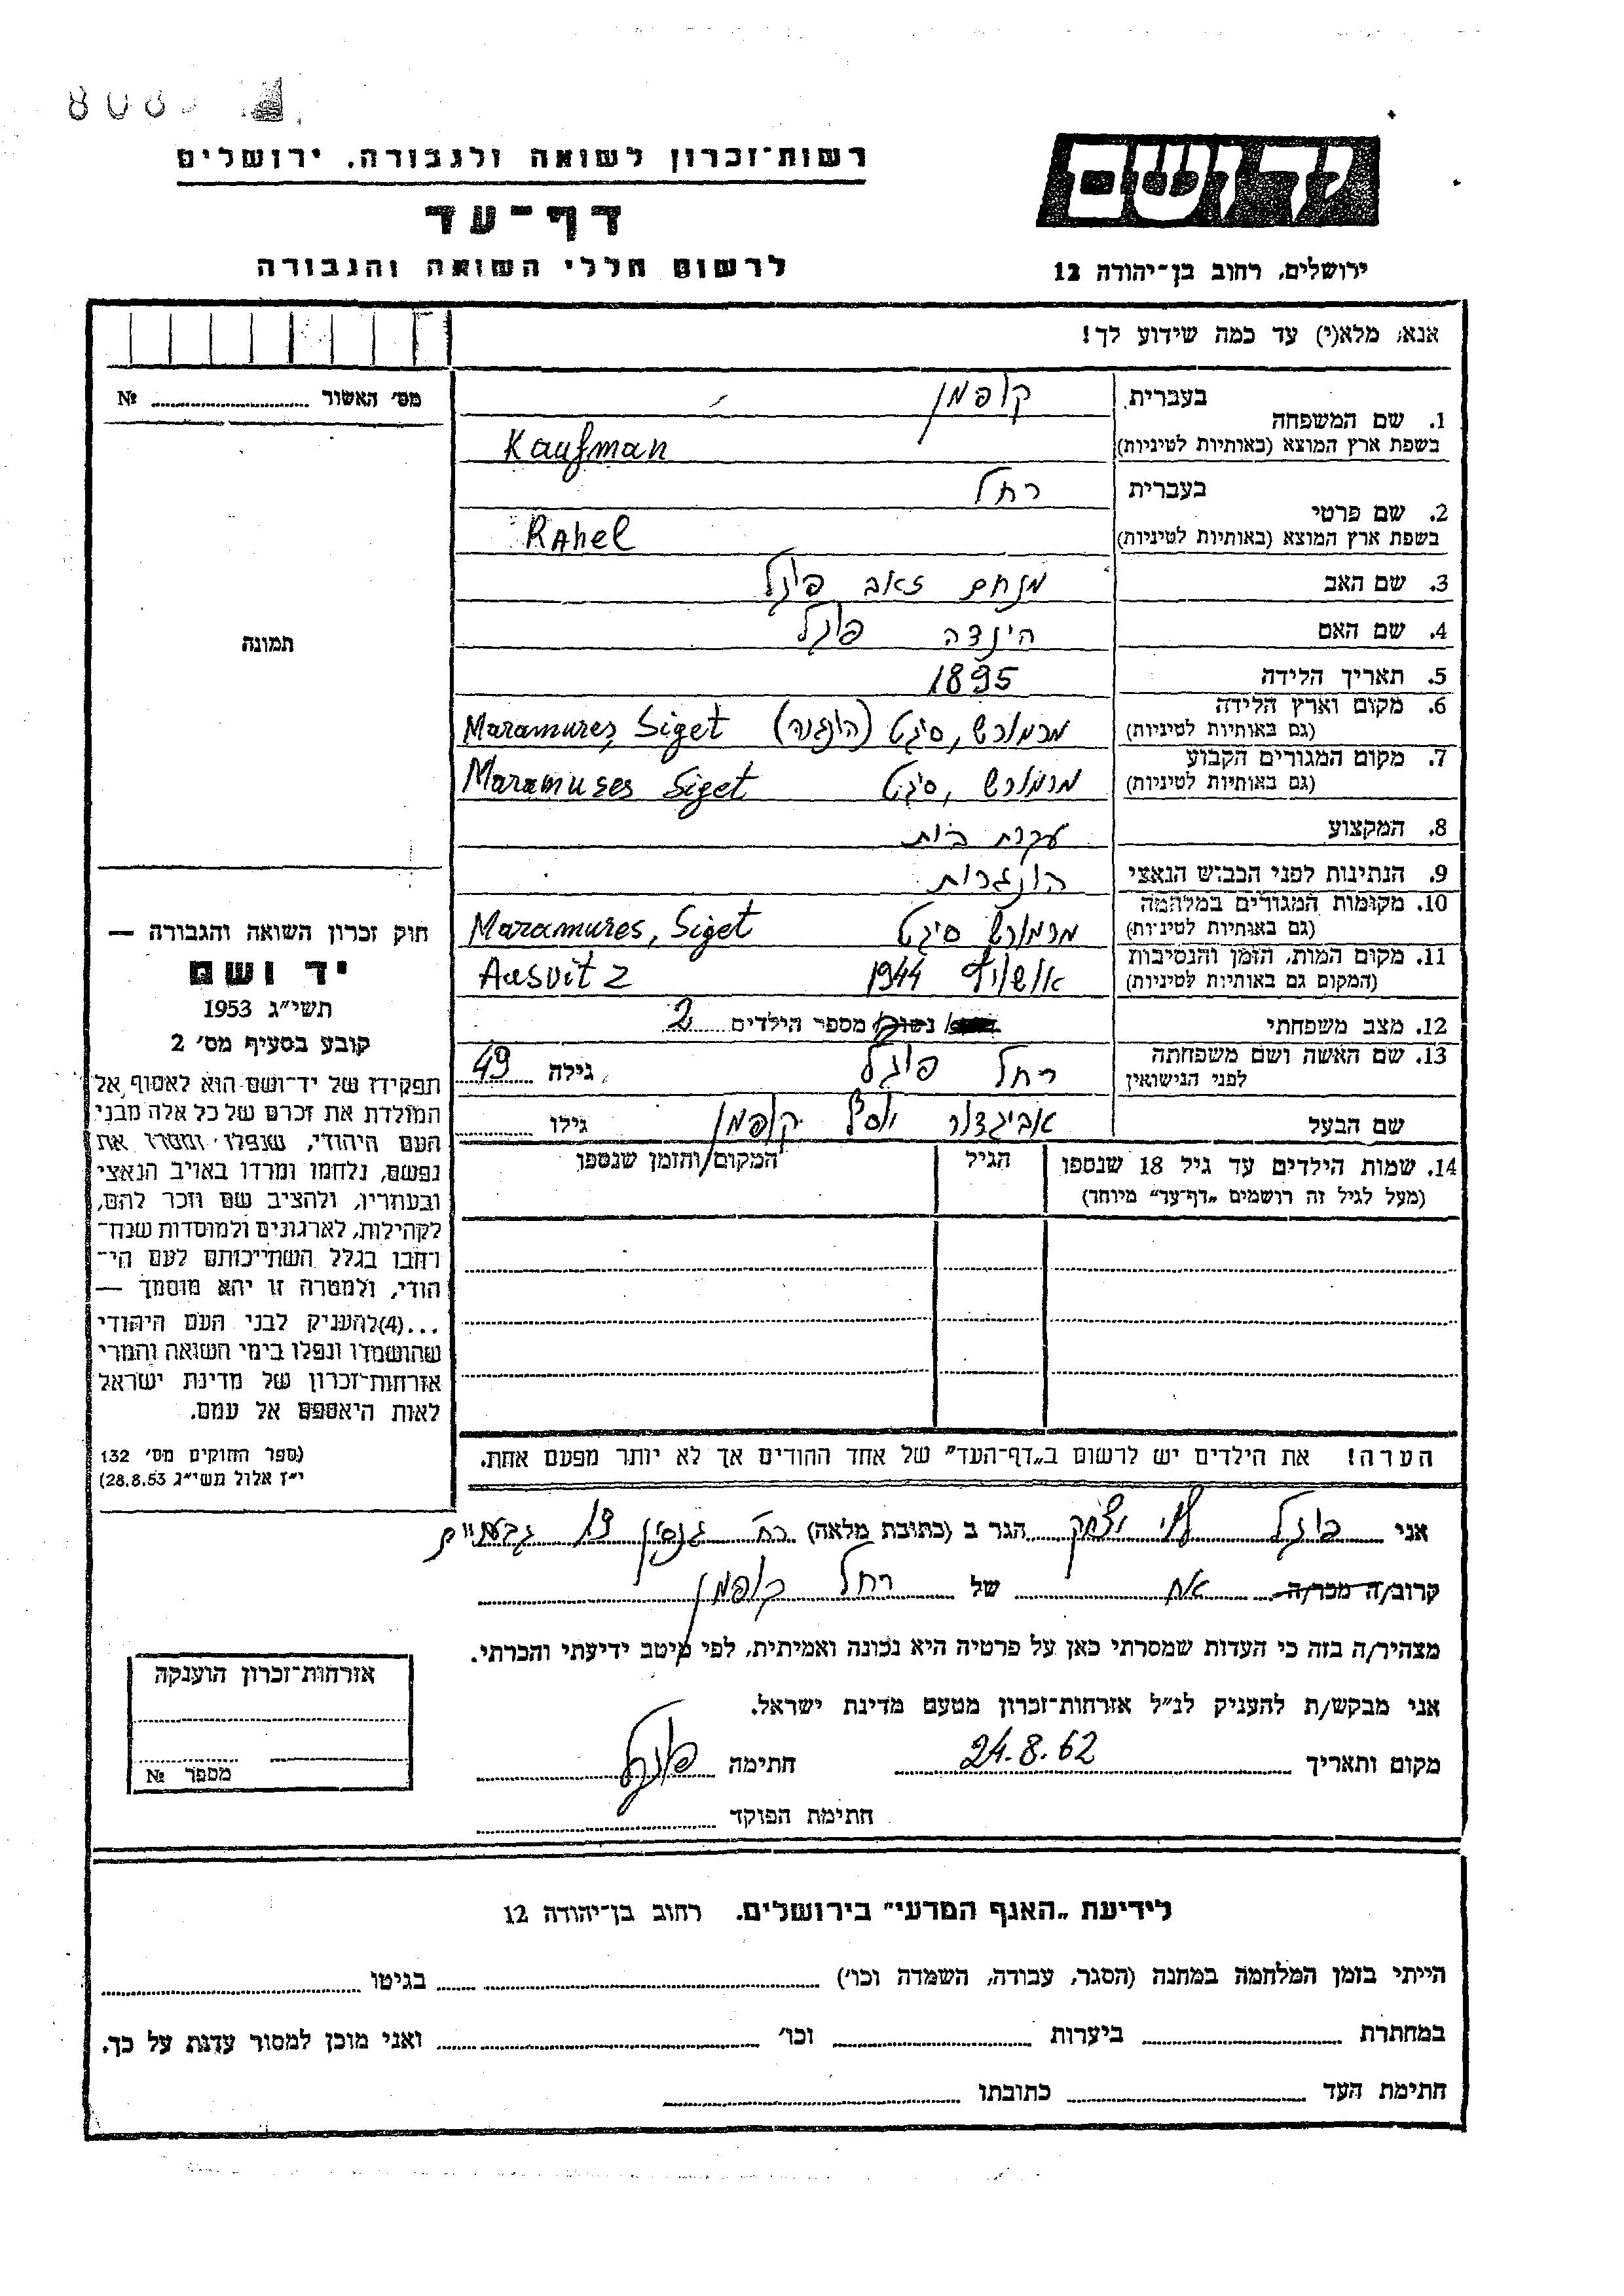 808
רשות־זכרון לשואה ולגבורה, ירושלים
יד ושם
דף־עד
לרשום חללי השואה והגבורה
ירושלים, רחוב בן־יהודה 12
אנא, מלא(י) עד כמה שידוע לך!
מס׳ האשור № 
1. שם המשפחה
בעברית קופמן
בשפת ארץ המוצא (באותיות לטיניות) Kaufman
2. שם פרטי
בעברית רחל
בשפת ארץ המוצא (באותיות לטיניות) RAhel
3. שם האב מנחם זאב פוגל
4. שם האם הינדה פוגל
5. תאריך הלידה 1895
6. מקום וארץ הלידה מרמורש, סיגט (הונגריה) Maramures, Siget
(גם באותיות לטיניות)
7. מקום המגורים הקבוע מרמורש, סיגט Maramures Siget
(גם באותיות לטיניות)
8. המקצוע עקרת בית
9. הנתינות לפני הכבוש הנאצי הונגרית
10. מקומות המגורים במלחמה מרמורש סיגט Maramures, Siget
(גם באותיות לטיניות)
11. מקום המות, הזמן והנסיבות אושויץ 1944 Ausvitz
(המקום גם באותיות לטיניות)
12. מצב משפחתי נשוי/ מספר הילדים 2
13. שם האשה ושם משפחתה רחל פוגל גילה 49
לפני הנישואין
שם הבעל אביגדור יוסף קופמן גילו
14. שמות הילדים עד גיל 18 שנספו
(מעל לגיל זה רושמים „דף־עד״ מיוחד)
הגיל
המקום והזמן שנספו
תמונה
חוק זכרון השואה והגבורה —
יד ושם
תשי״ג 1953
קובע בסעיף מס׳ 2
תפקידו של יד־ושם הוא לאסוף אל
המולדת את זכרם של כל אלה מבני
העם היהודי, שנפלו ומסרו את
נפשם, נלחמו ומרדו באויב הנאצי
ובעוזריו, ולהציב שם וזכר להם,
לקהילות, לארגונים ולמוסדות שנח־
רבו בגלל השתייכותם לעם הי־
הודי, ולמטרה זו יהא מוסמך —
...(4)להעניק לבני העם היהודי
שהושמדו ונפלו בימי השואה והמרי
אזרחות־זכרון של מדינת ישראל
לאות היאספם אל עמם.
(ספר החוקים מס׳ 132
י״ז אלול תשי״ג 28.8.53)
הערה! את הילדים יש לרשום ב„דף־העד״ של אחד ההורים אך לא יותר מפעם אחת.
אני פוגל יצחק הגר ב (כתובת מלאה) רח׳ גנסין 19 גבעתיים
קרוב/ה מכר/ה אח של רחל קופמן
מצהיר/ה בזה כי העדות שמסרתי כאן על פרטיה היא נכונה ואמיתית, לפי מיטב ידיעתי והכרתי.
אני מבקש/ת להעניק לנ״ל אזרחות־זכרון מטעם מדינת ישראל.
מקום ותאריך 24.8.62 חתימה פוגל
חתימת הפוקד
אזרחות־זכרון הוענקה
מספר №
לידיעת „האגף המדעי״ בירושלים. רחוב בן־יהודה 12
הייתי בזמן המלחמה במחנה (הסגר, עבודה, השמדה וכו׳) בגיטו
במחתרת ביערות וכו׳ ואני מוכן למסור עדות על כך.
חתימת העד כתובתו